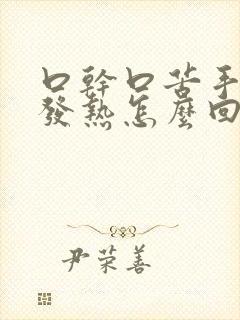 口幹口苦手
發熱怎麼回
尹荣善